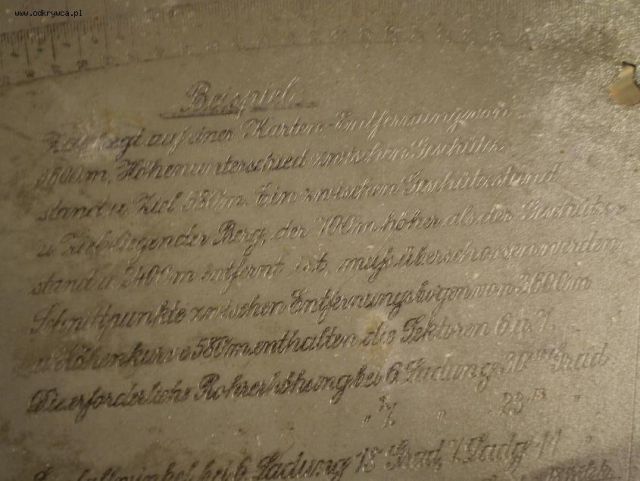 www.odkrywca.pl
Beispiel.
Ziel liegt auf einer Karten-Entfernung von
3600m, Höhenunterschied zwischen Geschütz-
stand u. Ziel 580m. Ein zwischen Geschützstand
u. Ziel liegender Berg, der 700m höher als der Geschütz-
stand u. 2400m entfernt ist, muß überschossen werden.
Schnittpunkte zwischen Entfernungsbogen von 3600m
u. Höhenkurve 580m enthalten die Sektoren 6 u. 7.
Die erforderliche Rohrerhöhung bei 6. Ladung 30 Grad
" 7. " 23 "
bei 6. Ladung 18 Grad, 7. Ladg. 11 "